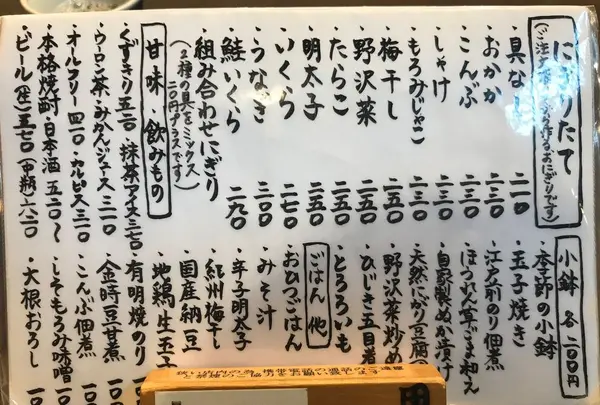 にぎりたて
具なし 二一〇
おかか 二三〇
こんぶ 二三〇
しゃけ 二三〇
もろみじゃこ 二三〇
梅干し 二五〇
野沢菜 二五〇
たらこ 二五〇
明太子 二五〇
いくら 二七〇
うなぎ 二〇〇
鮭いくら 二九〇
組み合わせにぎり
(2種の具をミックス
二〇円プラスです)
甘味 飲みもの
くずきり 五二〇 抹茶アイス 三七〇
ウーロン茶・みかんジュース 二一〇
オールフリー 四一〇 カルピス 三二〇
本格焼酎・日本酒 五二〇〜
ビール(生)五七〇(中瓶)六八〇
小鉢 各三〇〇円
季節の小鉢
玉子焼き
江戸前のり佃煮
ほうれん草ごま和え
自家製ぬか漬け
天然にがり豆腐
野沢菜炒め
ひじき五目煮
とろろいも
ごはん 他
おひつごはん
みそ汁
辛子明太子
紀州梅干し
国産納豆
地鶏生玉子
有明焼のり
金時豆甘煮
こんぶ佃煮
しそもろみ味噌
大根おろし